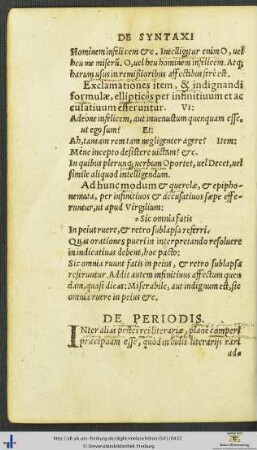 DE SYNTAXI
Hominem infelicem &c. Intelligitur enim O, uel
heu me miserū. O, uel heu hominem infelicem. Atq;
harum usus in remissioribus affectibus ferè est.
Exclamationes item, & indignandi
formulæ, ellipticῶs per infinitiuum et ac
cusatiuum efferuntur. Vt:
Adeóne infelicem, aut inuenustum quenquam esse,
ut ego sum? Et:
Ah, tantam rem tam negligenter agere? Item:
Méne incepto desistere uictam? &c.
In quibus plerunq; uerbum Oportet, uel Decet, uel
simile aliquod intelligendum.
Ad hunc modum & querelæ, & epipho-
nemata, per infinitiuos & accusatiuos sæpe effe-
runtur, ut apud Virgilium:
Sic omnia fatis
In peius ruere, & retro sublapsa referri.
Quas orationes pueri in interpretando resoluere
in indicatiuas debent, hoc pacto:
Sic omnia ruunt fatis in peius, & retro sublapsa
referuntur. Addit autem infinitiuus affectum quen
dam, quasi dicas: Miserabile, aut indignum est, sic
omnia ruere in peius &c.
DE PERIODIS.
INter alias pestes rei literariæ, planè comperi
præcipuam esse, quòd in ludis literarijs rari
ado
http://dl.ub.uni-freiburg.de/diglit/melanchthon1541/0432
© Universitätsbibliothek Freiburg